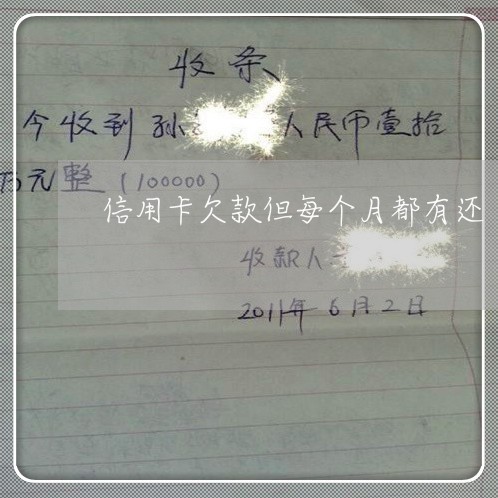 收条
今收到孙 人民币壹拾
万元整（100000）
信用卡欠款但每个月都有还
收款人
2011年6月2日